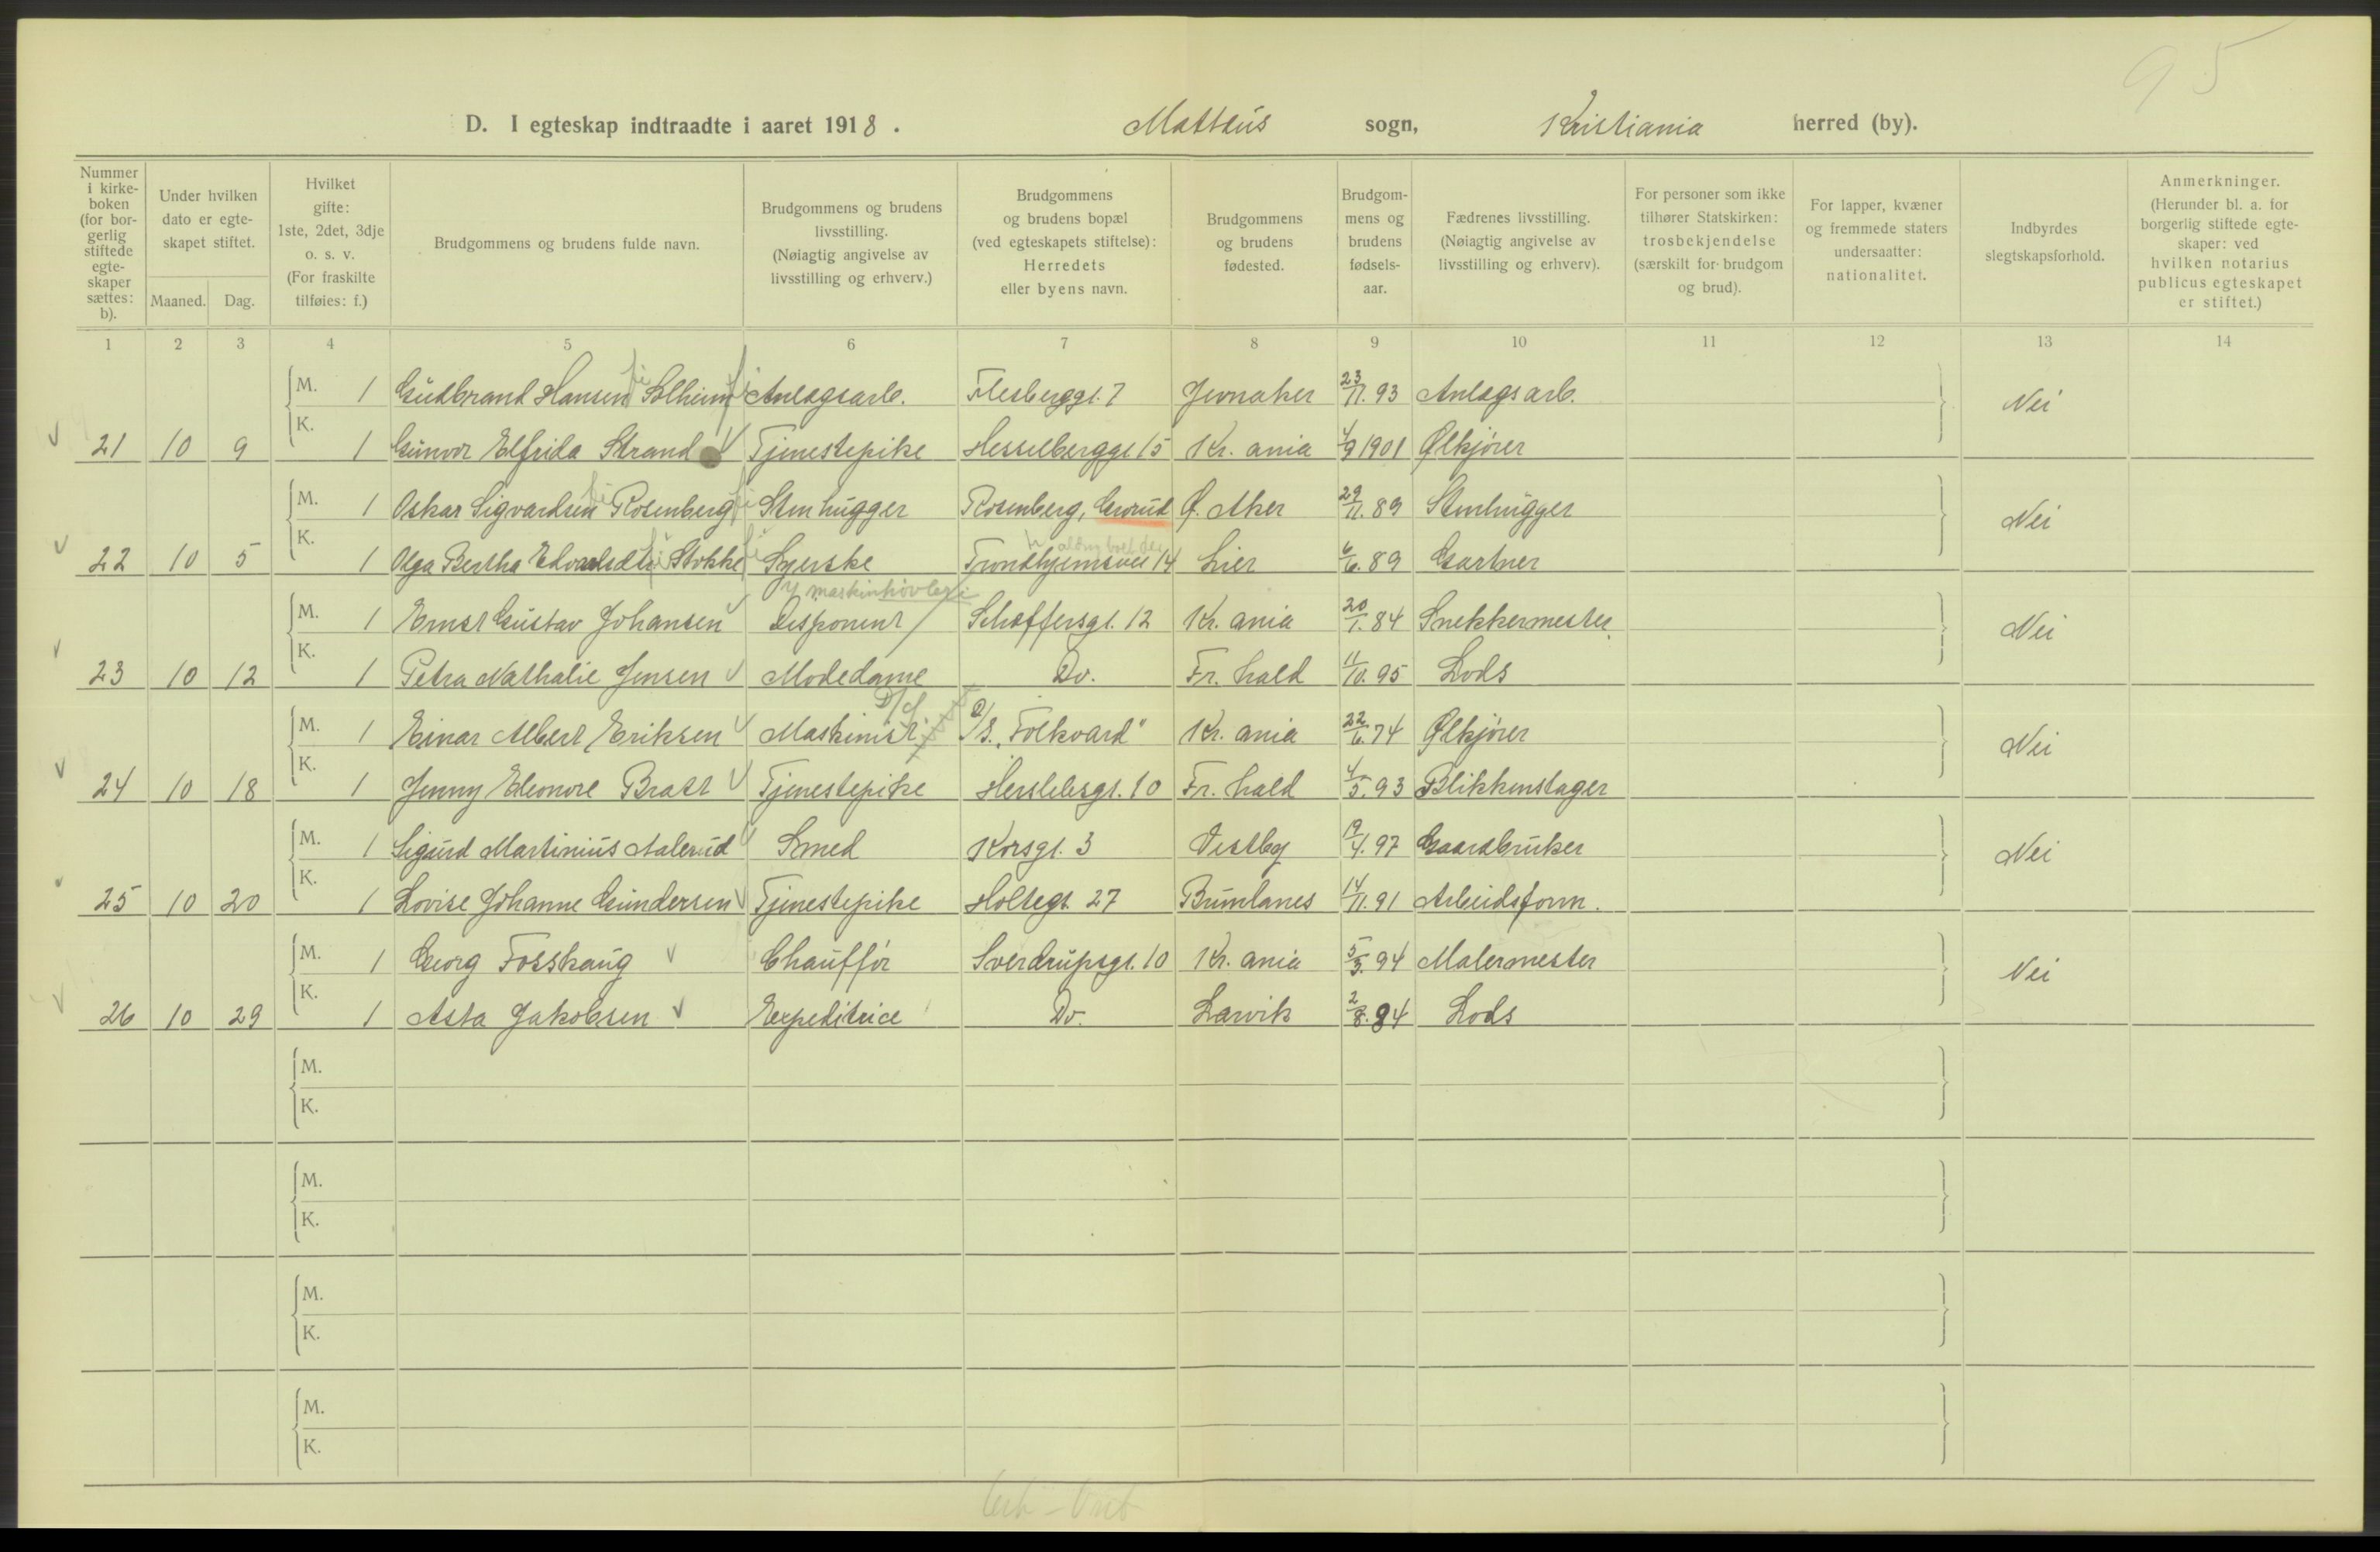 95
D. I egteskap indtraadte i aaret 1918. Mattæus sogn, Kristiania herred (by).
Nummer i kirke-boken (for bor-gerlig stiftede egte-skaper sættes: b). Under hvilken dato er egte-skapet stiftet. Maaned. Dag. Hvilket gifte: 1ste, 2det, 3dje o. s. v. (For fraskilte tilføies: f.) Brudgommens og brudens fulde navn. Brudgommens og brudens livsstilling. (Nøiagtig angivelse av livsstilling og erhverv.) Brudgommens og brudens bopæl (ved egteskapets stiftelse): Herredets eller byens navn. Brudgommens og brudens fødested. Brudgom-mens og brudens fødsels-aar. Fædrenes livsstilling. (Nøiagtig angivelse av livsstilling og erhverv). For personer som ikke tilhører Statskirken: trosbekjendelse (særskilt for brudgom og brud). For lapper, kvæner og fremmede staters undersaatter: nationalitet. Indbyrdes slegtskapsforhold. Anmerkninger. (Herunder bl. a. for borgerlig stiftede egte-skaper: ved hvilken notarius publicus egteskapet er stiftet.)
1 2 3 4 5 6 7 8 9 10 11 12 13 14
M. 1 Gudbrand Hansen Solheim Anlægsarb. Flesberggt. 7 Jevnaker 23/11. 93 Anlægsarb. Nei
21 10 9 K. 1 Gunvor Elfrida Strand Tjenestepike Hesselberggt 15 Kr.ania 4/9 1901 Ølkjører
M. 1 Oskar Sigvardsen Rosenberg Stenhugger Rosenberg, Grorud Ø. Aker 29/11. 89 Stenhugger Nei
22 10 5 K. 1 Olga Bertha Edvardsdtr Stokke Syerske Trondhjemsvei 14 Lier 6/6. 89 Gartner
maskinhøvleri
M. 1 Ernst Gustav Johansen Disponent Schæffersgt. 12 Kr.ania 20/1. 84 Snekkermester Nei
23 10 12 K. 1 Petra Nathalie Jensen Modedame Do. Fr.hald 11/10. 95 Lods
D/S
M. 1 Einar Albert Eriksen Maskinist D/S. „Folkvard" Kr.ania 22/6. 74 Ølkjører Nei
24 10 18 K. 1 Jenny Eleonore Bratt Tjenestepike Herslebsgt. 10 Fr.hald 4/5. 93 Blikkenslager
M. 1 Sigurd Martinius Aalerud Smed Korsgt. 3 Vestby 19/4. 97 Gaardbruker Nei
25 10 20 K. 1 Lovise Johanne Gundersen Tjenestepike Holtegt. 27 Brunlanes 14/11. 91 Arbeidsform.
M. 1 Georg Fosshaug Chauffør Sverdrupsgt. 10 Kr.ania 5/5. 94 Malermester Nei
26 10 29 K. 1 Asta Jakobsen Expeditrice Do. Larvik 2/8. 94 Lods
M.
K.
M.
K.
M.
K.
M.
K.